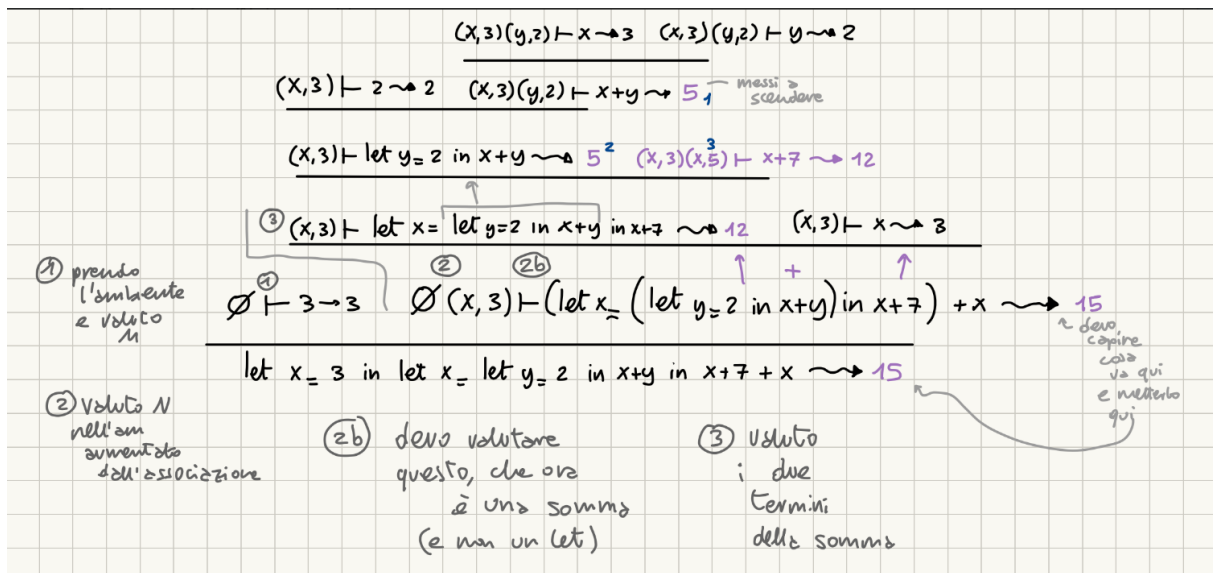 (x,3)(y,2) ⊢ x ⇝ 3   (x,3)(y,2) ⊢ y ⇝ 2
(x,3) ⊢ 2 ⇝ 2   (x,3)(y,2) ⊢ x+y ⇝ 5 1
messi a
scendere
(x,3) ⊢ let y = 2 in x+y ⇝ 5 2   (x,3)(x,5) 3 ⊢ x+7 ⇝ 12
③ (x,3) ⊢ let x = let y=2 in x+y in x+7 ⇝ 12   (x,3) ⊢ x ⇝ 3
① prendo
l'ambiente
e valuto
M
① ② ②b +
∅ ⊢ 3 → 3   ∅ (x,3) ⊢ (let x = (let y = 2 in x+y) in x+7) + x ⇝ 15
devo
capire
cosa
va qui
e metterlo
qui
let x = 3 in let x = let y = 2 in x+y in x+7 + x ⇝ 15
② valuto N
nell'am
aumentato
dall'associazione
②b devo valutare
questo, che ora
è una somma
(e non un let)
③ valuto
i due
termini
della somma